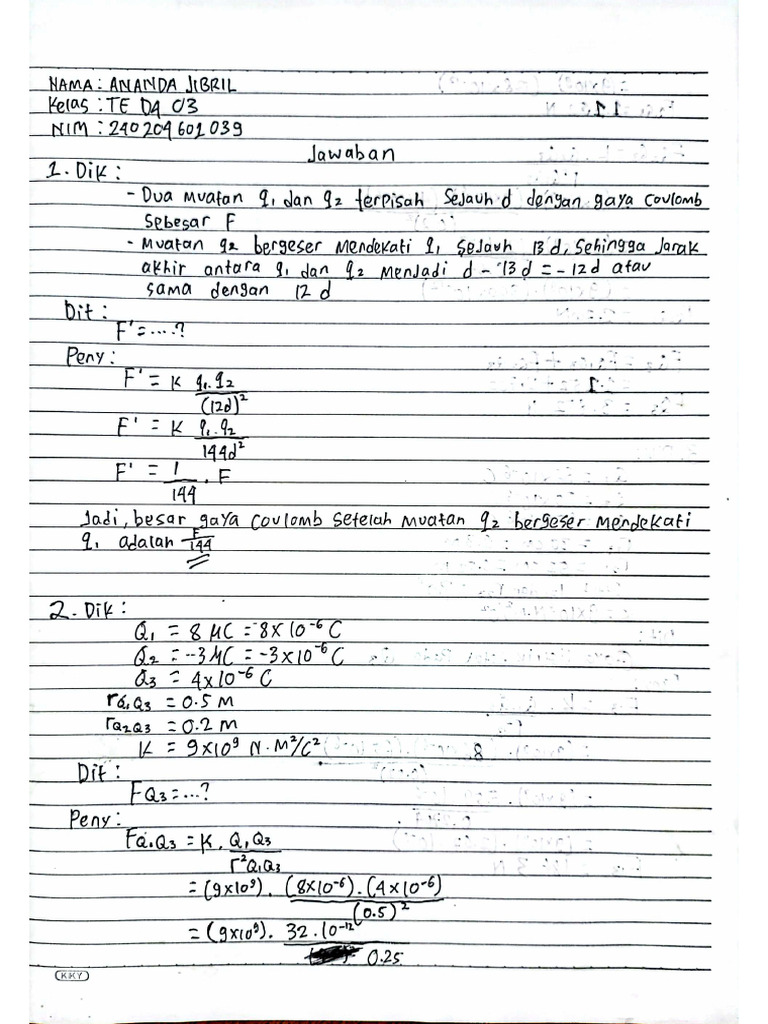 NAMA : ANANDA JIBRIL
Kelas : TE 04 03
NIM : 240204601039
Jawaban
1. Dik :
- Dua muatan q₁ dan q₂ terpisah sejauh d dengan gaya coulomb
sebesar F
- Muatan q₂ bergeser mendekati q₁ sejauh 13 d, sehingga jarak
akhir antara q₁ dan q₂ menjadi d - 13 d = - 12d atau
sama dengan 12 d
Dit :
F' = ....?
Peny :
F' = K q₁. q₂
(12d)²
F' = K q₁. q₂
144d²
F' = 1 . F
144
Jadi, besar gaya coulomb setelah muatan q₂ bergeser mendekati
q₁ adalah F/144
2. Dik :
Q₁ = 8 μC = 8 x 10⁻⁶ C
Q₂ = -3 μC = -3 x 10⁻⁶ C
Q₃ = 4 x 10⁻⁶ C
rQ₁Q₃ = 0.5 M
rQ₂Q₃ = 0.2 M
K = 9 x 10⁹ N.M²/C²
Dit :
FQ₃ = ...?
Peny :
FQ₁Q₃ = K . Q₁Q₃
r²Q₁Q₃
= (9x10⁹) . (8x10⁻⁶) . (4x10⁻⁶)
(0.5)²
= (9x10⁹) . 32 . 10⁻¹²
0.25
KKY